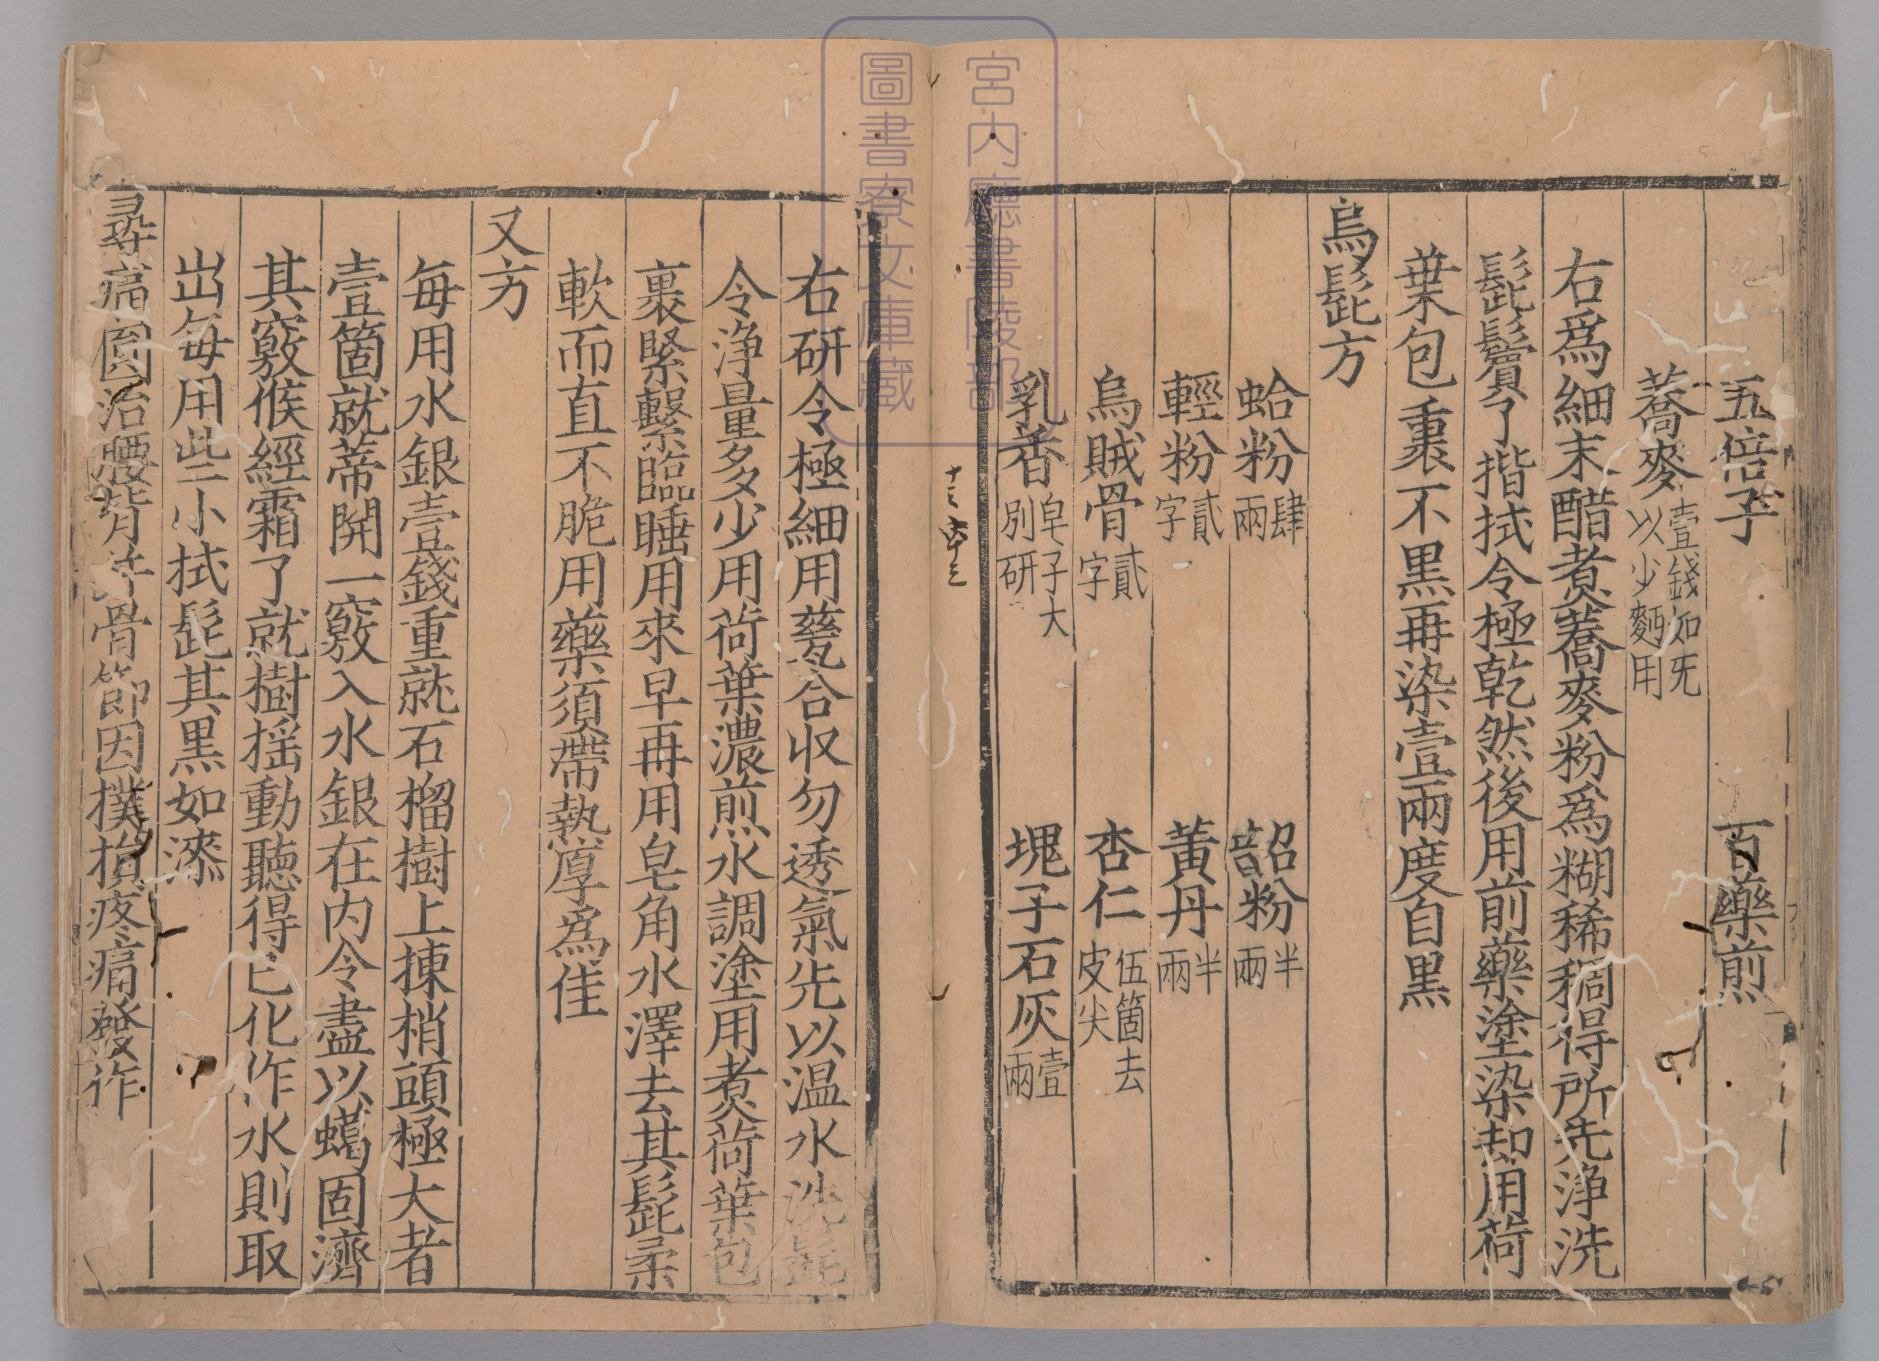 五倍子　百藥煎
蕎麥壹錢如旡以少麪用
右爲細末醋煮蕎麥粉爲糊稀稠得所先淨洗
髭鬢了揩拭令極乾然後用前藥塗染却用荷
葉包裹不黑再染壹兩度自黑
烏髭方
蛤粉肆兩　韶粉半兩
輕粉貳字　黃丹半兩
烏賊骨貳字　杏仁伍箇去皮尖
乳香皂子大別研　塊子石灰壹兩
右研令極細用甆合收勿透氣先以温水洗髭
令淨量多少用荷葉濃煎水調塗用煮荷葉包
裹緊繫臨睡用來早再用皂角水澤去其髭柔
軟而直不脆用藥須帶熱厚爲佳
又方
每用水銀壹錢重就石榴樹上揀梢頭極大者
壹箇就蒂開一竅入水銀在内令盡以蠟固濟
其竅候經霜了就樹揺動聽得已化作水則取
出每用些小拭髭其黑如漆
尋痛圓治腰背并骨節因撲損疼痛發作
十三 六十三
宮内廳書陵部
圖書寮文庫藏